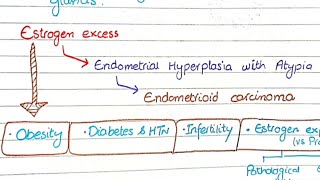 glands.
Estrogen excess
Endometrial Hyperplasia with Atypia
Endometrioid carcinoma
· Obesity · Diabetes & HTN · Infertility · Estrogen
(vs
Pathological